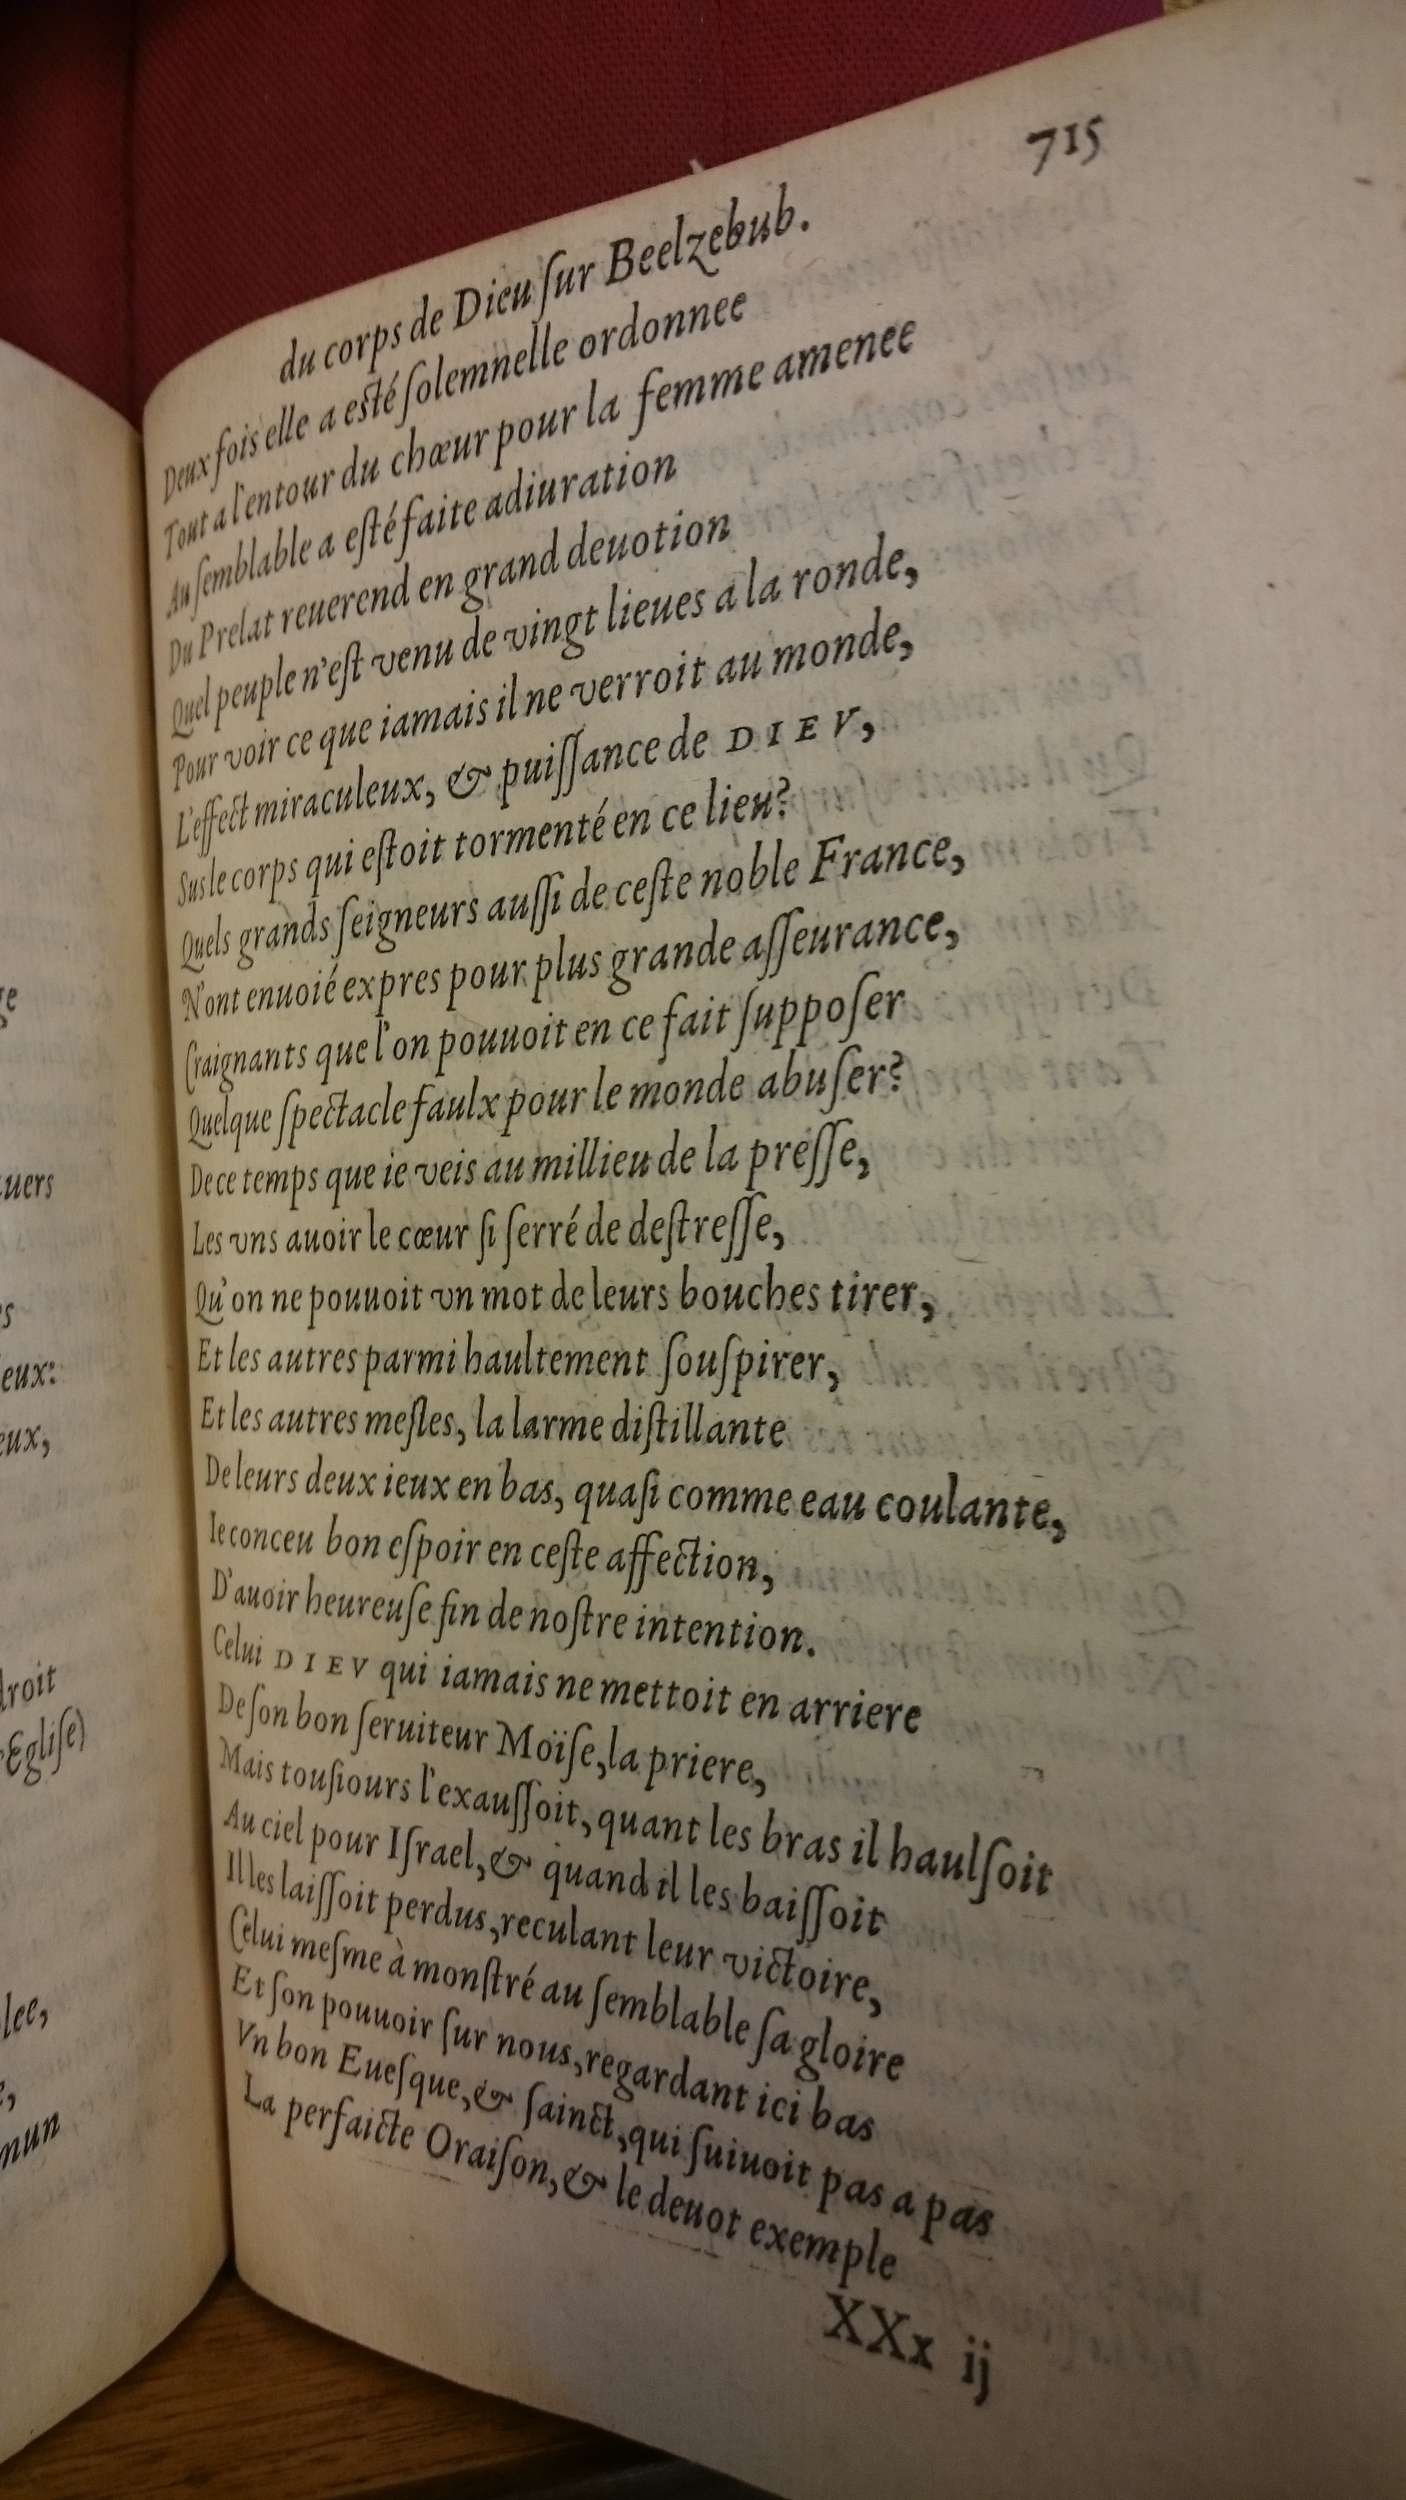 ge
uers
s
eux:
eux,
droit
Egliſe)
lee,
e,
mun
715
du corps de Dieu ſur Beelzebub.
Deux fois elle a eſté ſolemnelle ordonnee
Tout a l'entour du chœur pour la femme amenee
Au ſemblable a eſté faite adiuration
Du Prelat reuerend en grand deuotion
Quel peuple n'eſt venu de vingt lieues a la ronde,
Pour voir ce que iamais il ne verroit au monde,
L'effect miraculeux, & puiſſance de DIEV,
Sus le corps qui eſtoit tormenté en ce lieu?
Quels grands ſeigneurs auſſi de ceſte noble France,
N'ont enuoié expres pour plus grande aſſeurance,
Craignants que l'on pouuoit en ce fait ſuppoſer
Quelque ſpectacle faulx pour le monde abuſer?
De ce temps que ie veis au millieu de la preſſe,
Les vns auoir le cœur ſi ſerré de deſtreſſe,
Qu'on ne pouuoit vn mot de leurs bouches tirer,
Et les autres parmi haultement ſouſpirer,
Et les autres meſles, la larme diſtillante
De leurs deux ieux en bas, quaſi comme eau coulante,
Ie conceu bon eſpoir en ceſte affection,
D'auoir heureuſe fin de noſtre intention.
Celui DIEV qui iamais ne mettoit en arriere
De ſon bon ſeruiteur Moïſe, la priere,
Mais touſiours l'exauſſoit, quant les bras il haulſoit
Au ciel pour Iſrael, & quand il les baiſſoit
Il les laiſſoit perdus, reculant leur victoire,
Celui meſme à monſtré au ſemblable ſa gloire
Et ſon pouuoir ſur nous, regardant ici bas
Vn bon Eueſque, & ſainct, qui ſuiuoit pas a pas
La perfaicte Oraiſon, & le deuot exemple
XXx ij